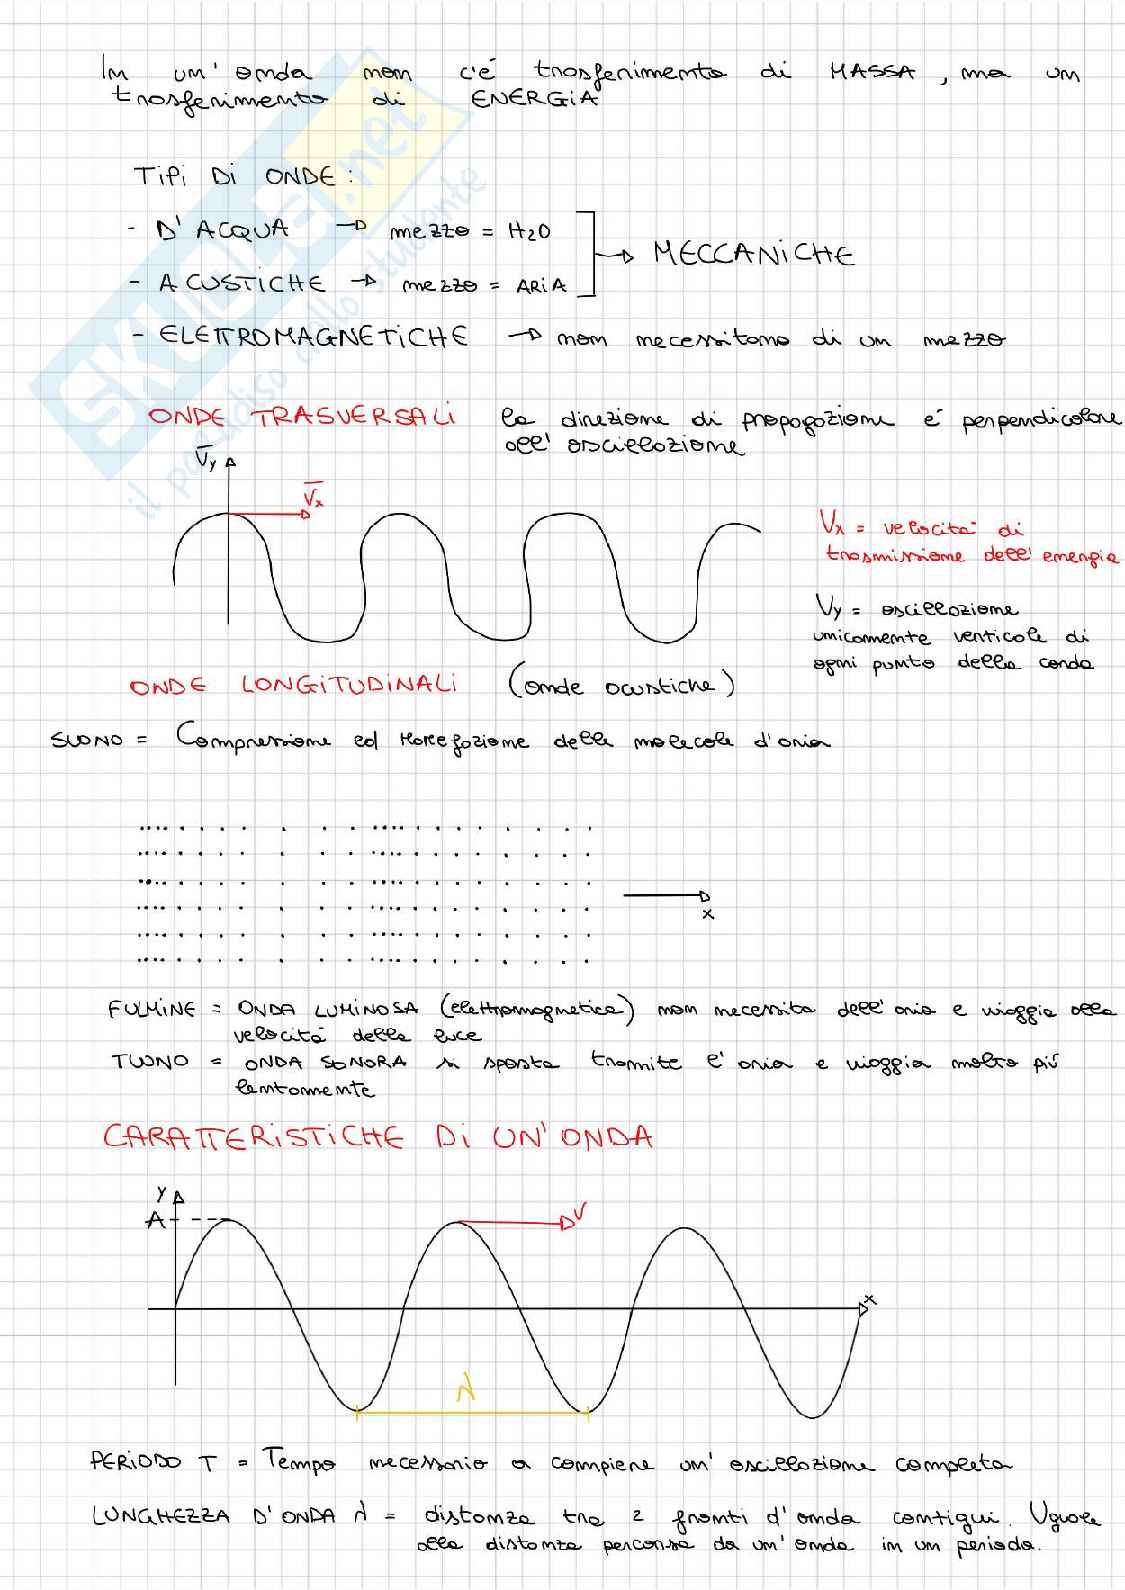 In un' onda non c'é trasferimento di MASSA, ma un
trasferimento di ENERGiA
TiPi Di ONDE:
- D' ACQUA → mezzo = H2O
- ACUSTiCHE → mezzo = ARiA
→ MECCANiCHE
- ELETTROMAGNETiCHE → non necessitano di un mezzo
ONDE TRASVERSALi la direzione di propagazione é perpendicolare
all' oscillazione
Vy
Vx
Vx = velocità di
trasmissione dell' energia
Vy = oscillazione
unicamente verticale di
ogni punto della corda
ONDE LONGiTUDiNALi (onde acustiche)
SUONO = Compressione ed rarefazione delle molecole d'aria
x
FULMiNE = ONDA LUMiNOSA (elettromagnetica) non necessita dell' aria e viaggia alla
velocità della luce
TUONO = ONDA SONORA si sposta tramite l' aria e viaggia molto più
lentamente
CARATTERiSTiCHE Di UN' ONDA
y
A
v
x
λ
PERiODO T = Tempo necessario a compiere un' oscillazione completa
LUNGHEZZA D' ONDA λ = distanza tra 2 fronti d' onda contigui. Uguale
alla distanza percorsa da un' onda in un periodo.
SKUOLA.net
il paradiso dello studente